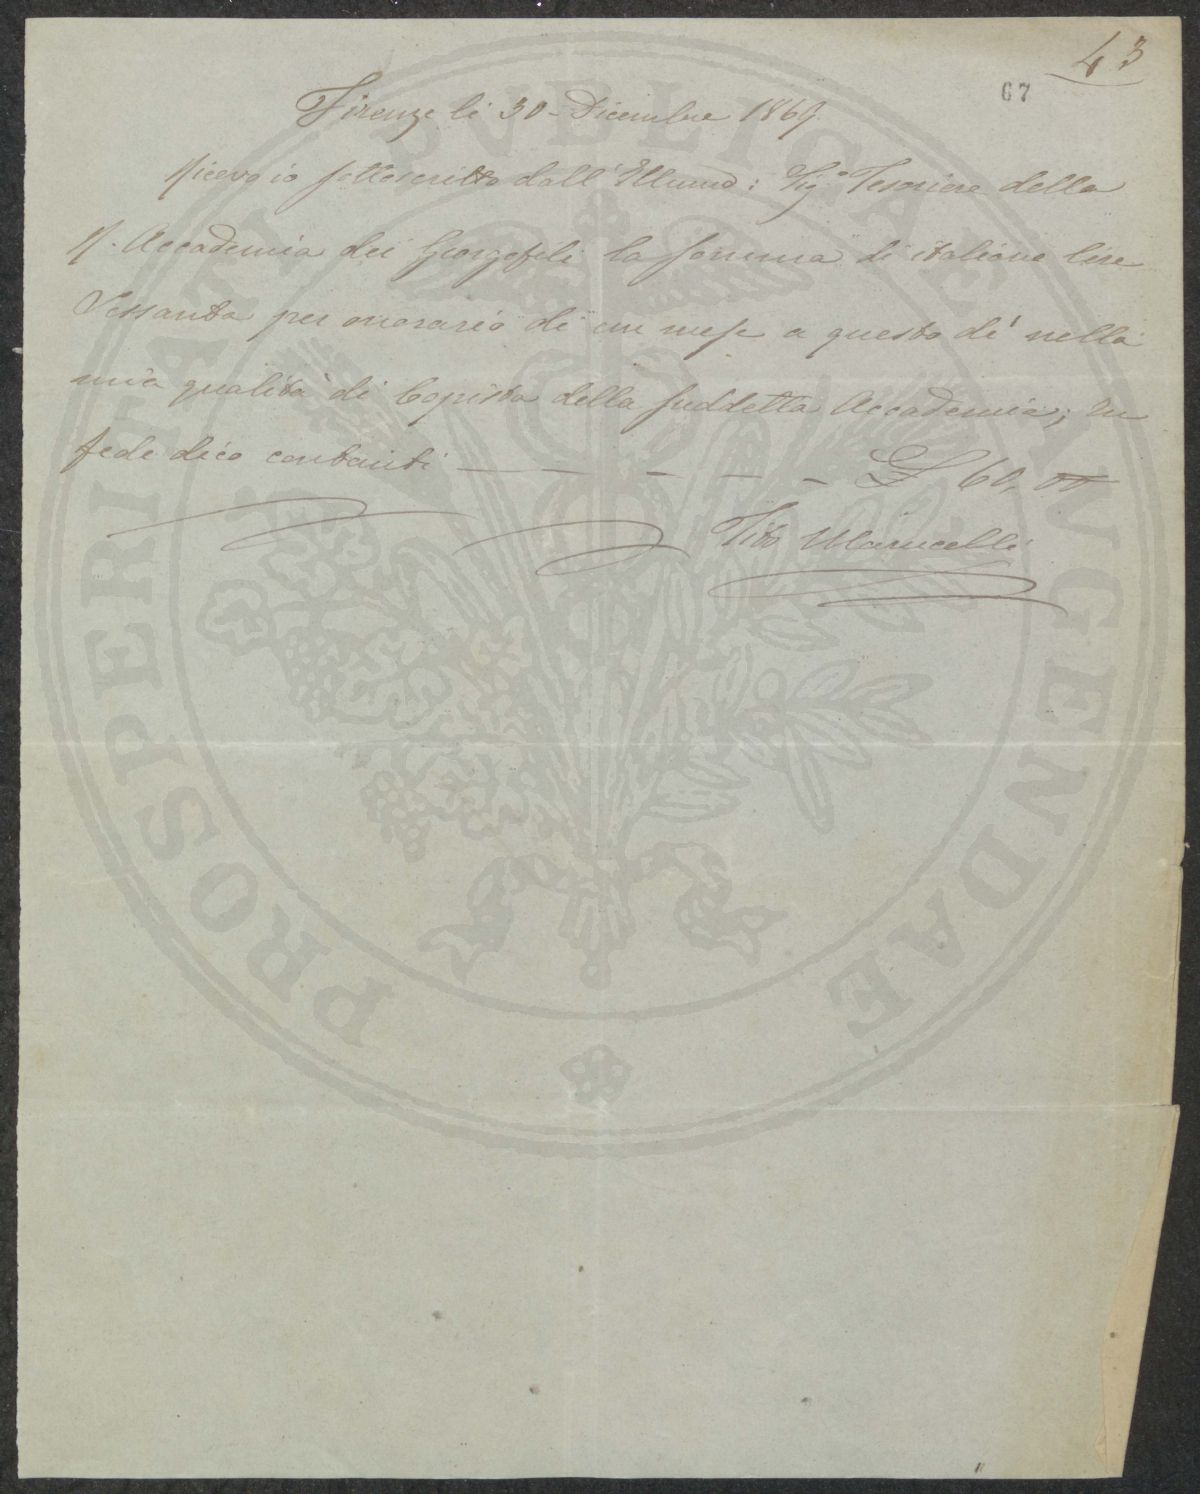 43
67
Firenze li 30 - Dicembre 1869
Ricevo io sottoscritto dall'Illumo: Sig.o Tesoriere della
R. Accademia dei Georgofili la somma di italiane lire
Sessanta per onorario di un mese a questo dì nella
mia qualità di Copista della suddetta Accademia; In
fede dico contanti — — — — — £ 60, 00
Tito Marucelli
PROSPERITATI PVBLICAE AVGENDAE